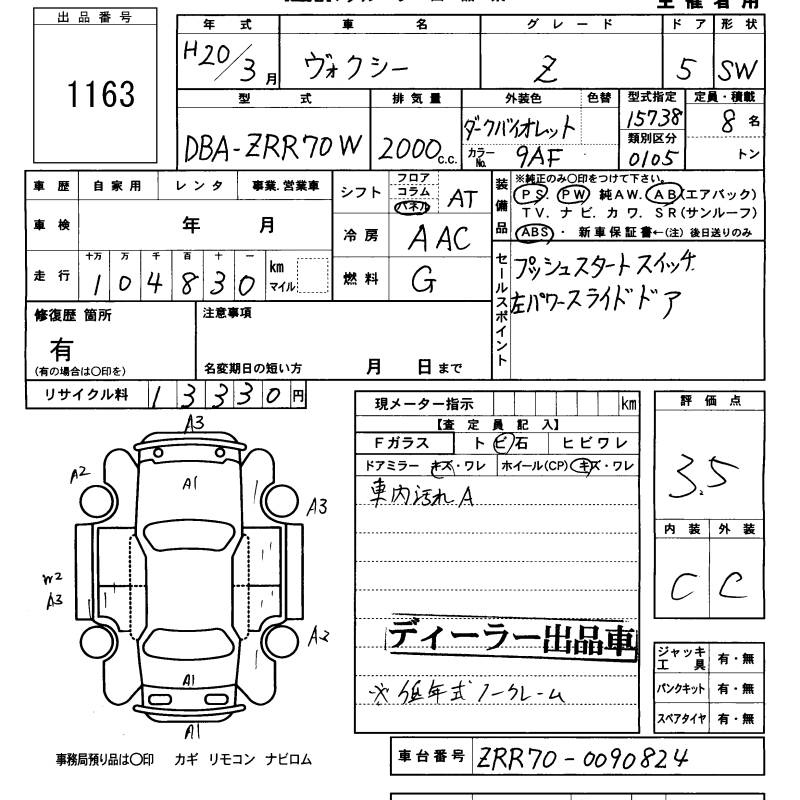 主催者用
出品番号
1163
年式 車名 グレード ドア 形状
H20/3月 ヴォクシー Z 5 SW
型式 排気量 外装色 色替 型式指定 定員・積載
DBA-ZRR70W 2000c.c. ダークバイオレット 15738 8名
類別区分
カラーNo. 9AF 0105 トン
車歴 自家用 レンタ 事業.営業車
車検 年 月
走行 十万 万 千 百 十 一
104830 km マイル
シフト フロア コラム パネル AT
冷房 AAC
燃料 G
装備品
※純正のみ〇印をつけて下さい。
PS. PW 純AW. AB(エアバッグ)
TV. ナビ. カワ. SR(サンルーフ)
ABS・ 新車保証書←(注)後日送りのみ
セールスポイント
プッシュスタートスイッチ
左パワースライドドア
修復歴 箇所
有
(有の場合は〇印を)
注意事項
名変期日の短い方 月 日まで
リサイクル料 13330円
現メーター指示 km
【査定員記入】
Fガラス トビ石 ヒビワレ
ドアミラー キズ・ワレ ホイール(CP) キズ・ワレ
車内汚れA
ディーラー出品車
※低年式ノークレーム
評価点
3.5
内装 外装
C C
ジャッキ工具 有・無
パンクキット 有・無
スペアタイヤ 有・無
A3
A2
A1
A3
W2
A3
A2
A1
A1
事務局預り品は〇印 カギ リモコン ナビロム
車台番号 ZRR70-0090824